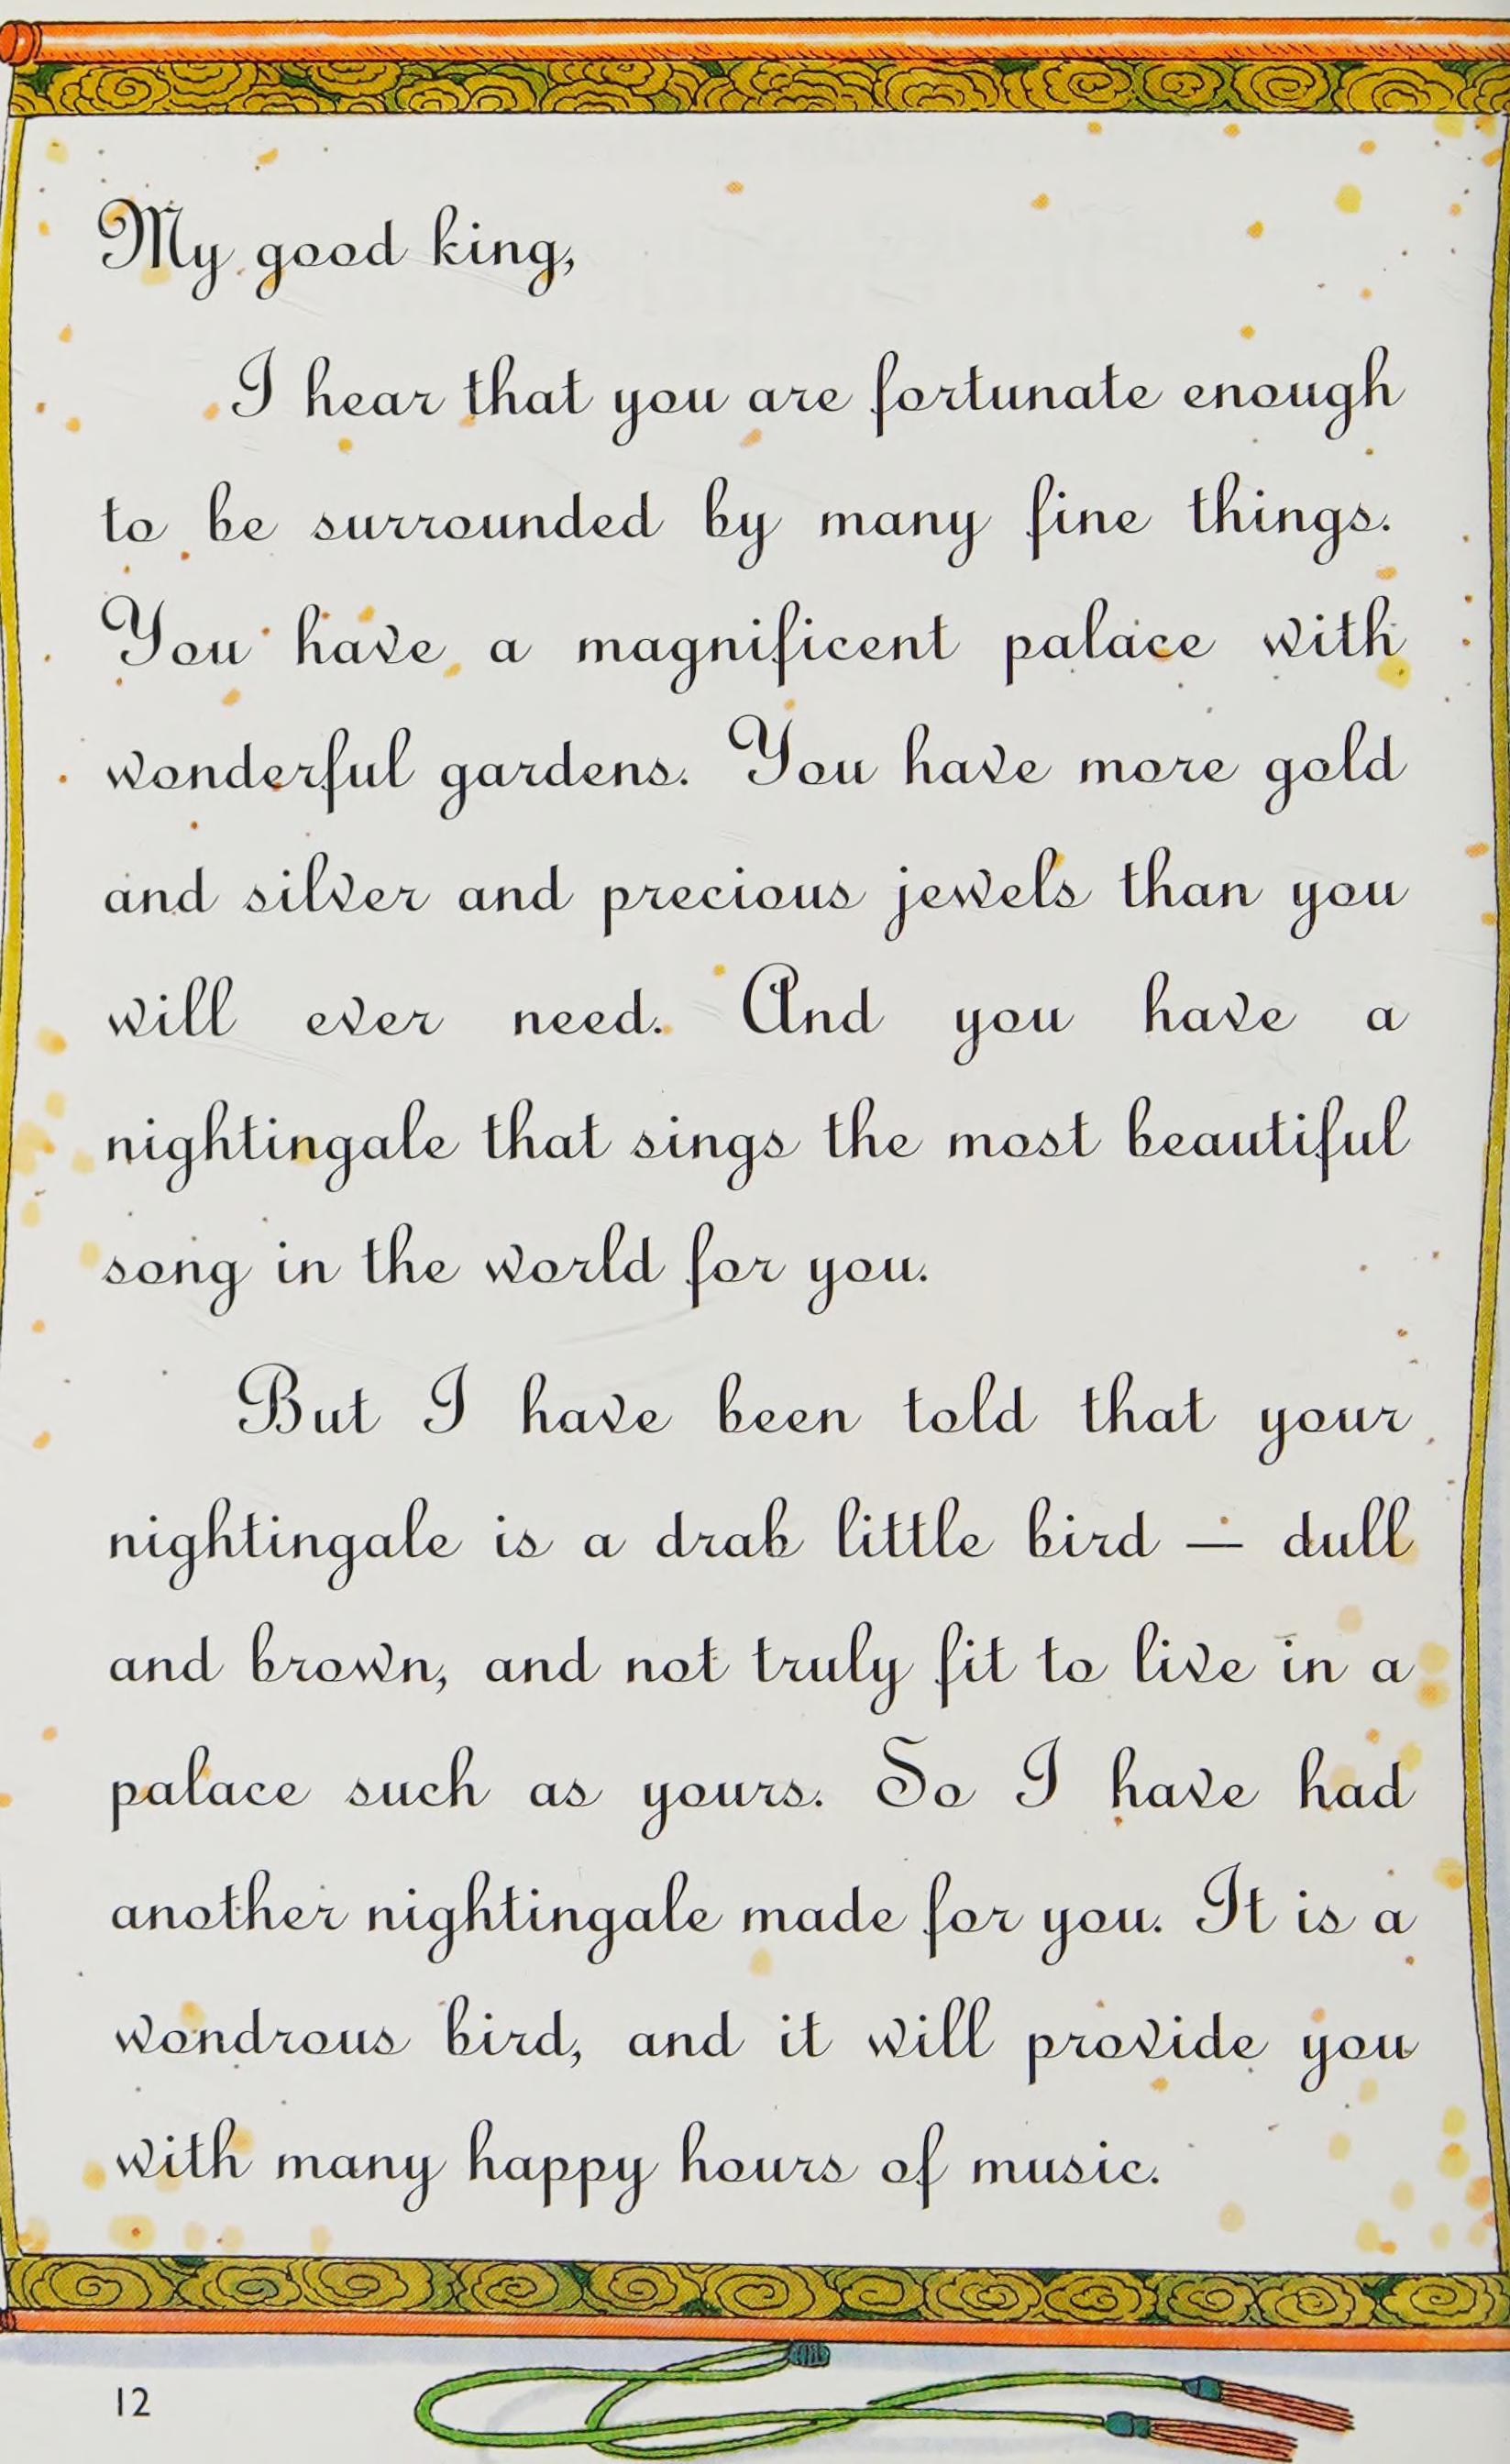 My good king,
I hear that you are fortunate enough
to be surrounded by many fine things.
You have a magnificent palace with
wonderful gardens. You have more gold
and silver and precious jewels than you
will ever need. And you have a
nightingale that sings the most beautiful
song in the world for you.
But I have been told that your
nightingale is a drab little bird — dull
and brown, and not truly fit to live in a
palace such as yours. So I have had
another nightingale made for you. It is a
wondrous bird, and it will provide you
with many happy hours of music.
12